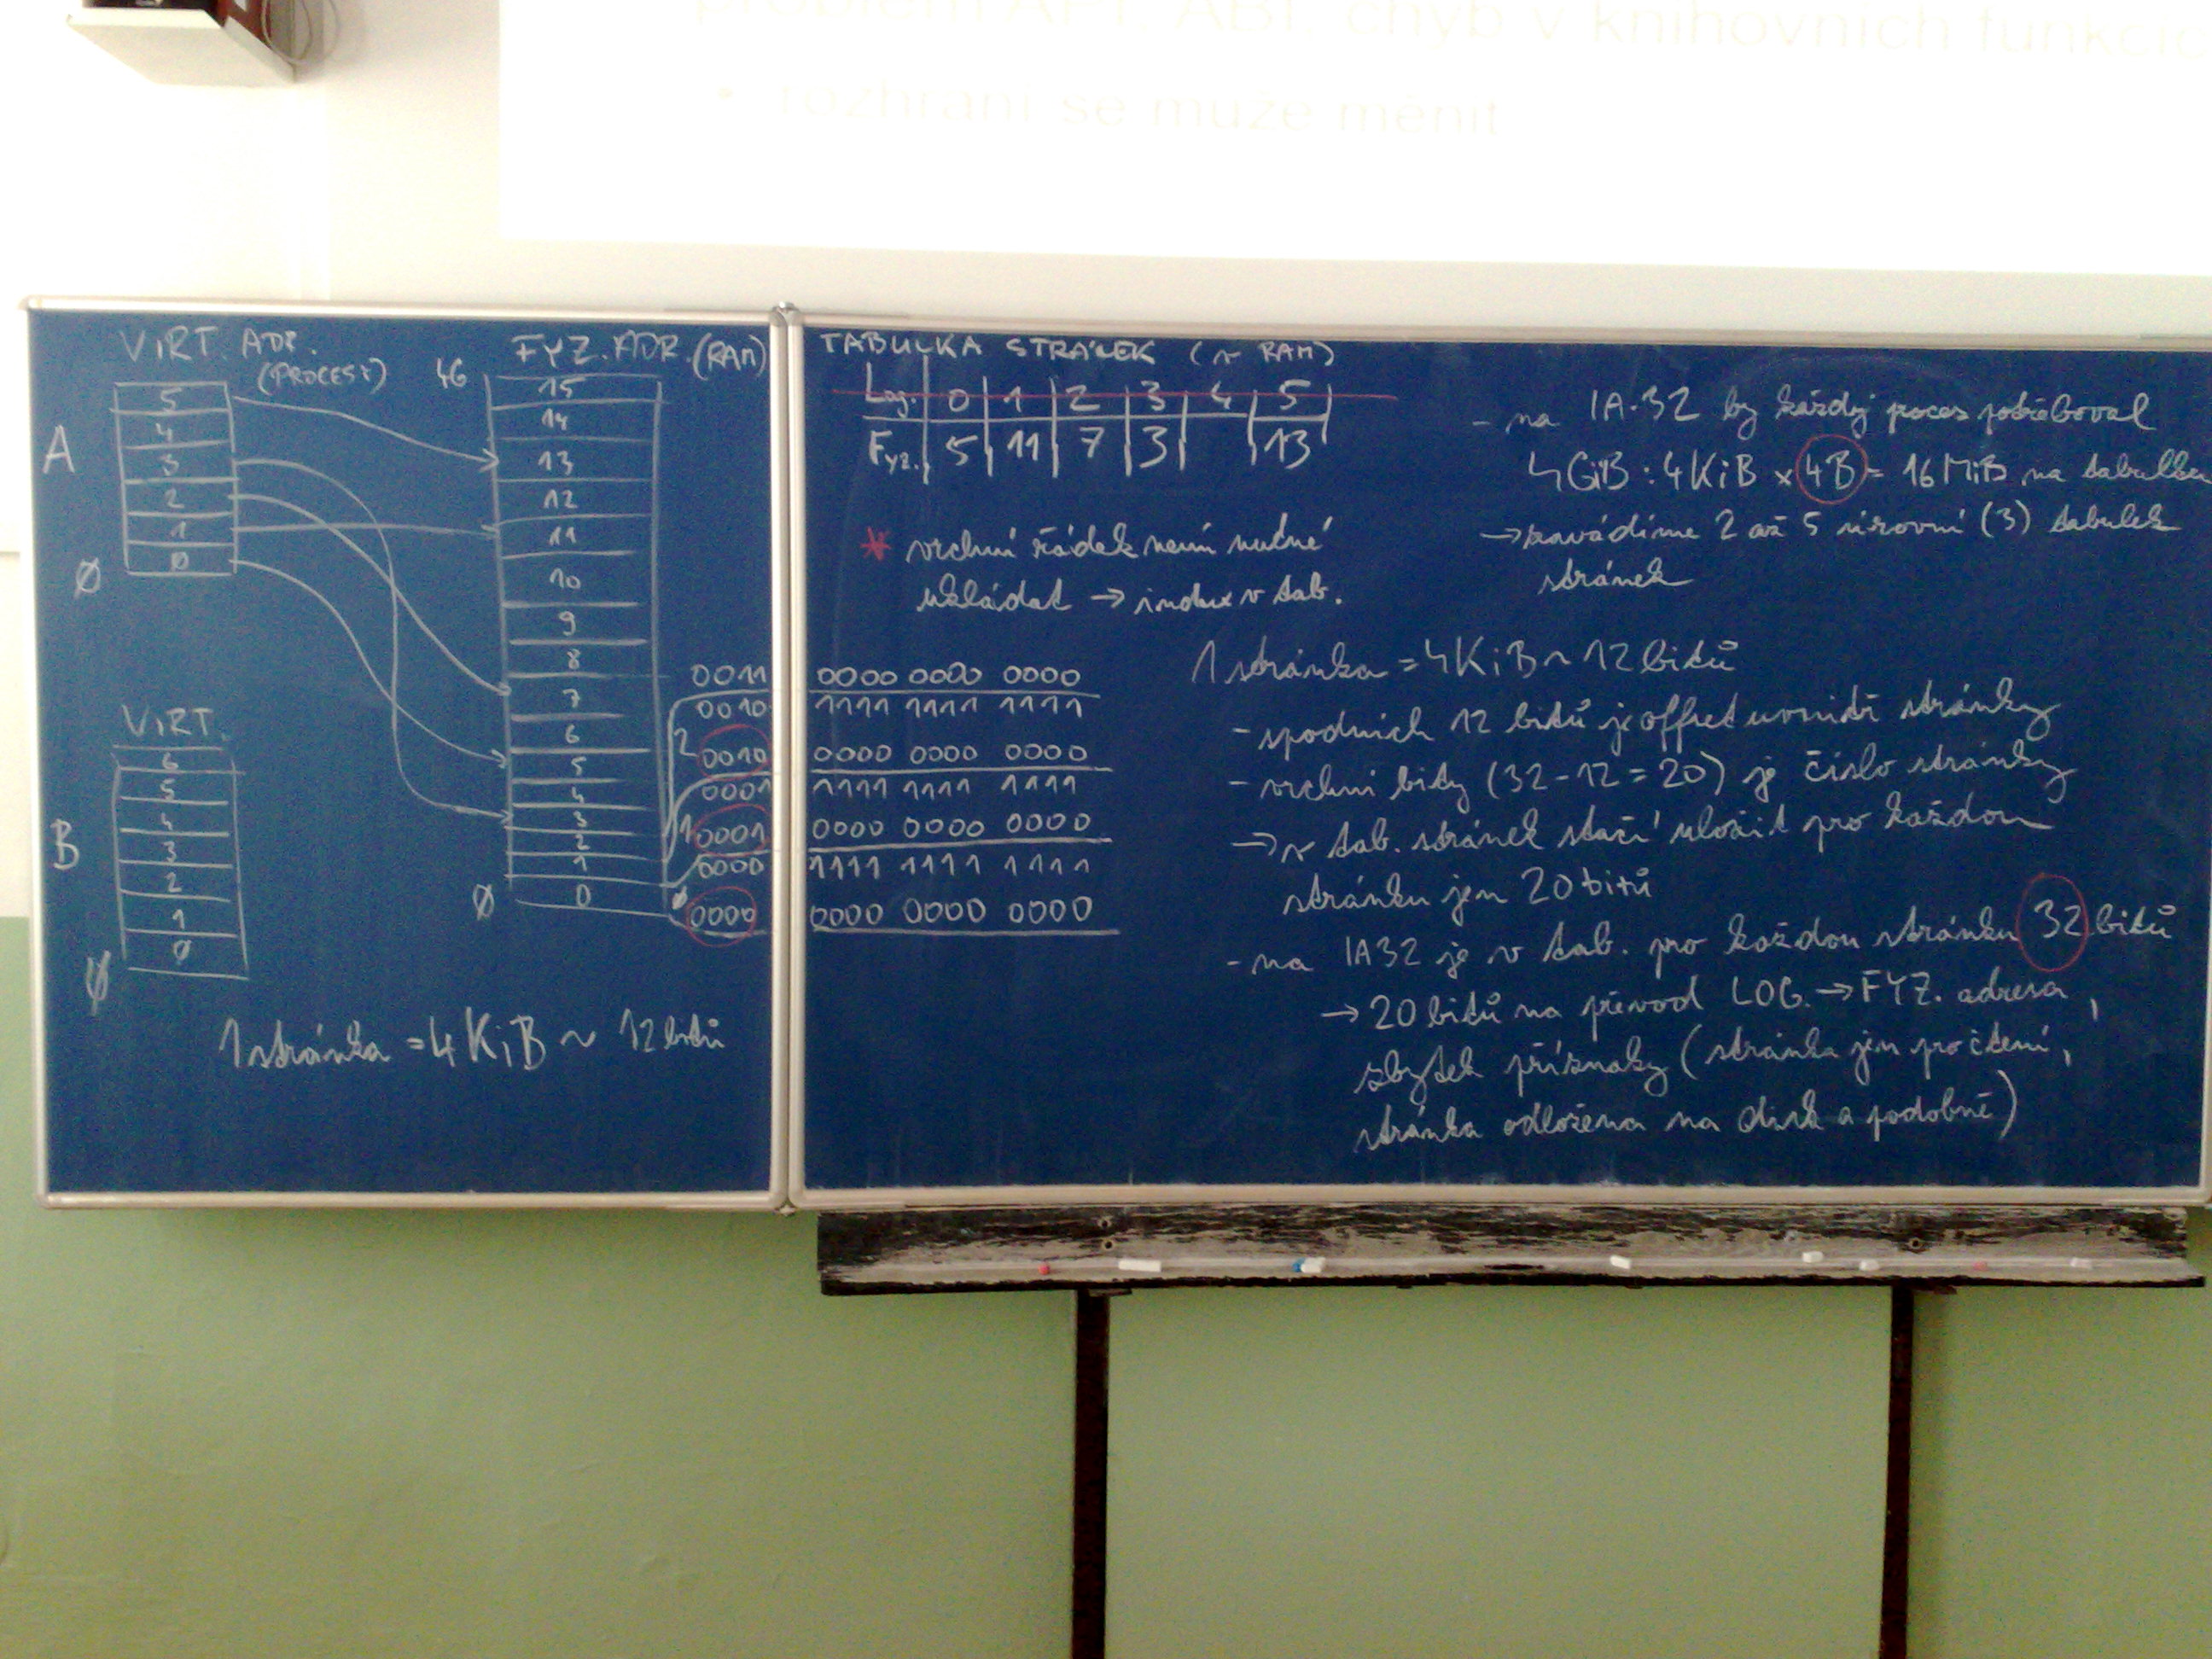 problém API, ABI, chyb v knihovních funkcíc
• rozhraní se může měnit
VIRT. ADR.
(PROCESY)
A
5
4
3
2
1
0
Ø
VIRT.
B
6
5
4
3
2
1
Ø
Ø
1 stránka = 4KiB ~ 12 bitů
FYZ. ADR. (RAM)
4G
15
14
13
12
11
10
9
8
7
6
5
4
3
2
1
0
Ø
TABULKA STRÁNEK (v RAM)
Log. 0 1 2 3 4 5
Fyz. 5 11 7 3 13
* vrchní řádek není nutné
ukládat → index v tab.
0011 0000 0000 0000
0010 1111 1111 1111
2 0010 0000 0000 0000
0001 1111 1111 1111
1 0001 0000 0000 0000
0000 1111 1111 1111
Ø 0000 0000 0000 0000
- na IA-32 by každý proces potřeboval
4GiB : 4KiB × 4B = 16MiB na tabulku
→ zavádíme 2 až 5 úrovní (3) tabulek
stránek
1 stránka = 4KiB ~ 12 bitů
- spodních 12 bitů je offset uvnitř stránky
- vrchní bity (32-12=20) je číslo stránky
→ v tab. stránek stačí uložit pro každou
stránku jen 20 bitů
- na IA32 je v tab. pro každou stránku 32 bitů
→ 20 bitů na převod LOG. → FYZ. adresa,
zbytek příznaky (stránka jen pro čtení,
stránka odložena na disk a podobně)